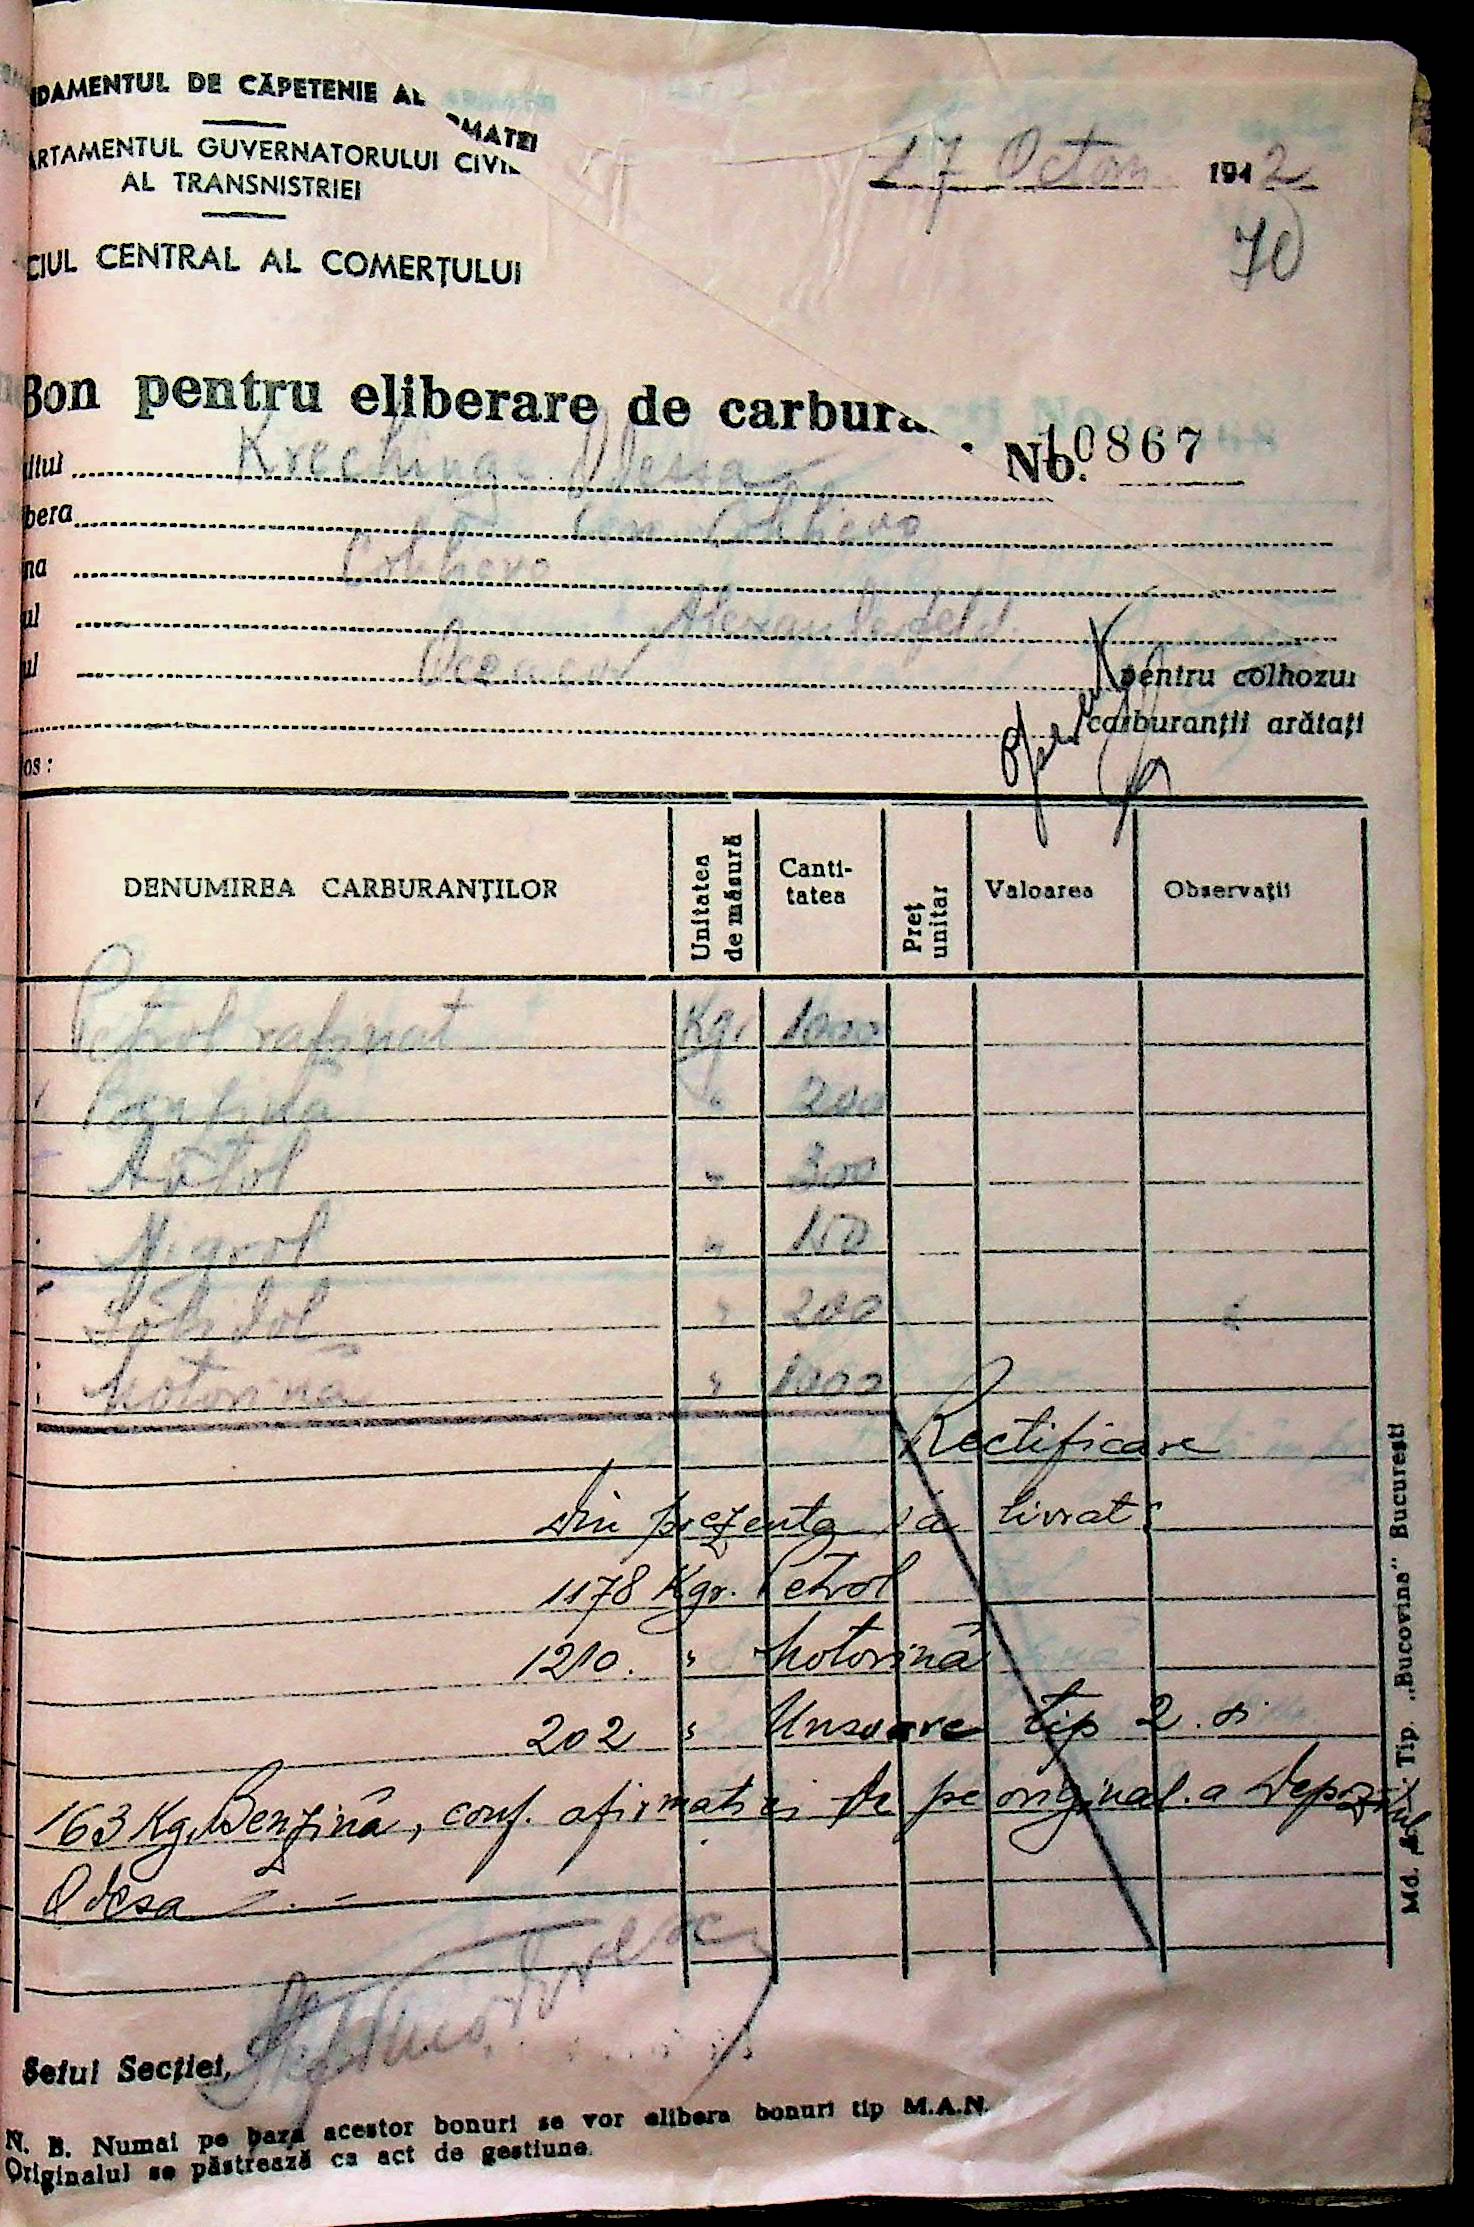 NDAMENTUL DE CĂPETENIE AL
RMATEI
ARTAMENTUL GUVERNATORULUI CIVIL
AL TRANSNISTRIEI
CIUL CENTRAL AL COMERŢULUI
17 Octom 1942
70
Bon pentru eliberare de carbura
No. 10867
itul Krechinge Odessa
bera Com Cohhievo
na Cohhievo
ul Alexanderfeld
ul Oceacov pentru colhozul
carburanţii arătaţi
os:
DENUMIREA CARBURANŢILOR Unitatea de măsură Canti-tatea Preţ unitar Valoarea Observaţii
Petrol rafinat Kgr 1000
Benzina " 200
Avtol " 300
Nigrol " 150
Solidol " 200
Motorina " 1000
Rectificare
din prezenta s'a livrat:
1178 Kgr. Petrol
1210. " Motorină
202 " Unsoare tip 2. si
163 Kg. Benzină, conf. afirmatiei de pe original. a Depozitul
Odesa
Şeful Secţiei,
N. B. Numai pe baza acestor bonuri se vor elibera bonuri tip M.A.N.
Originalul se păstrează ca act de gestiune.
Md. Tip. „Bucovina" Bucureşti